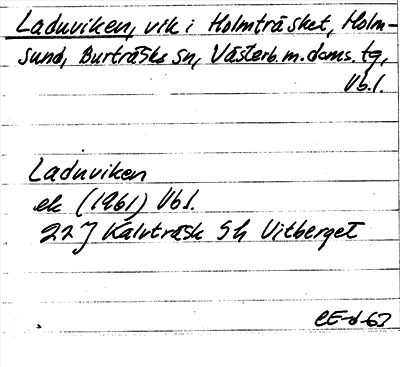 Laduviken, vik i Holmträsket, Holm-
sund, Burträsks sn, Västerb. m. doms. tg,
Vb.l.
Laduviken
ek (1961) Vbl.
22J Kalvträsk 5h Vitberget
CE-d-63